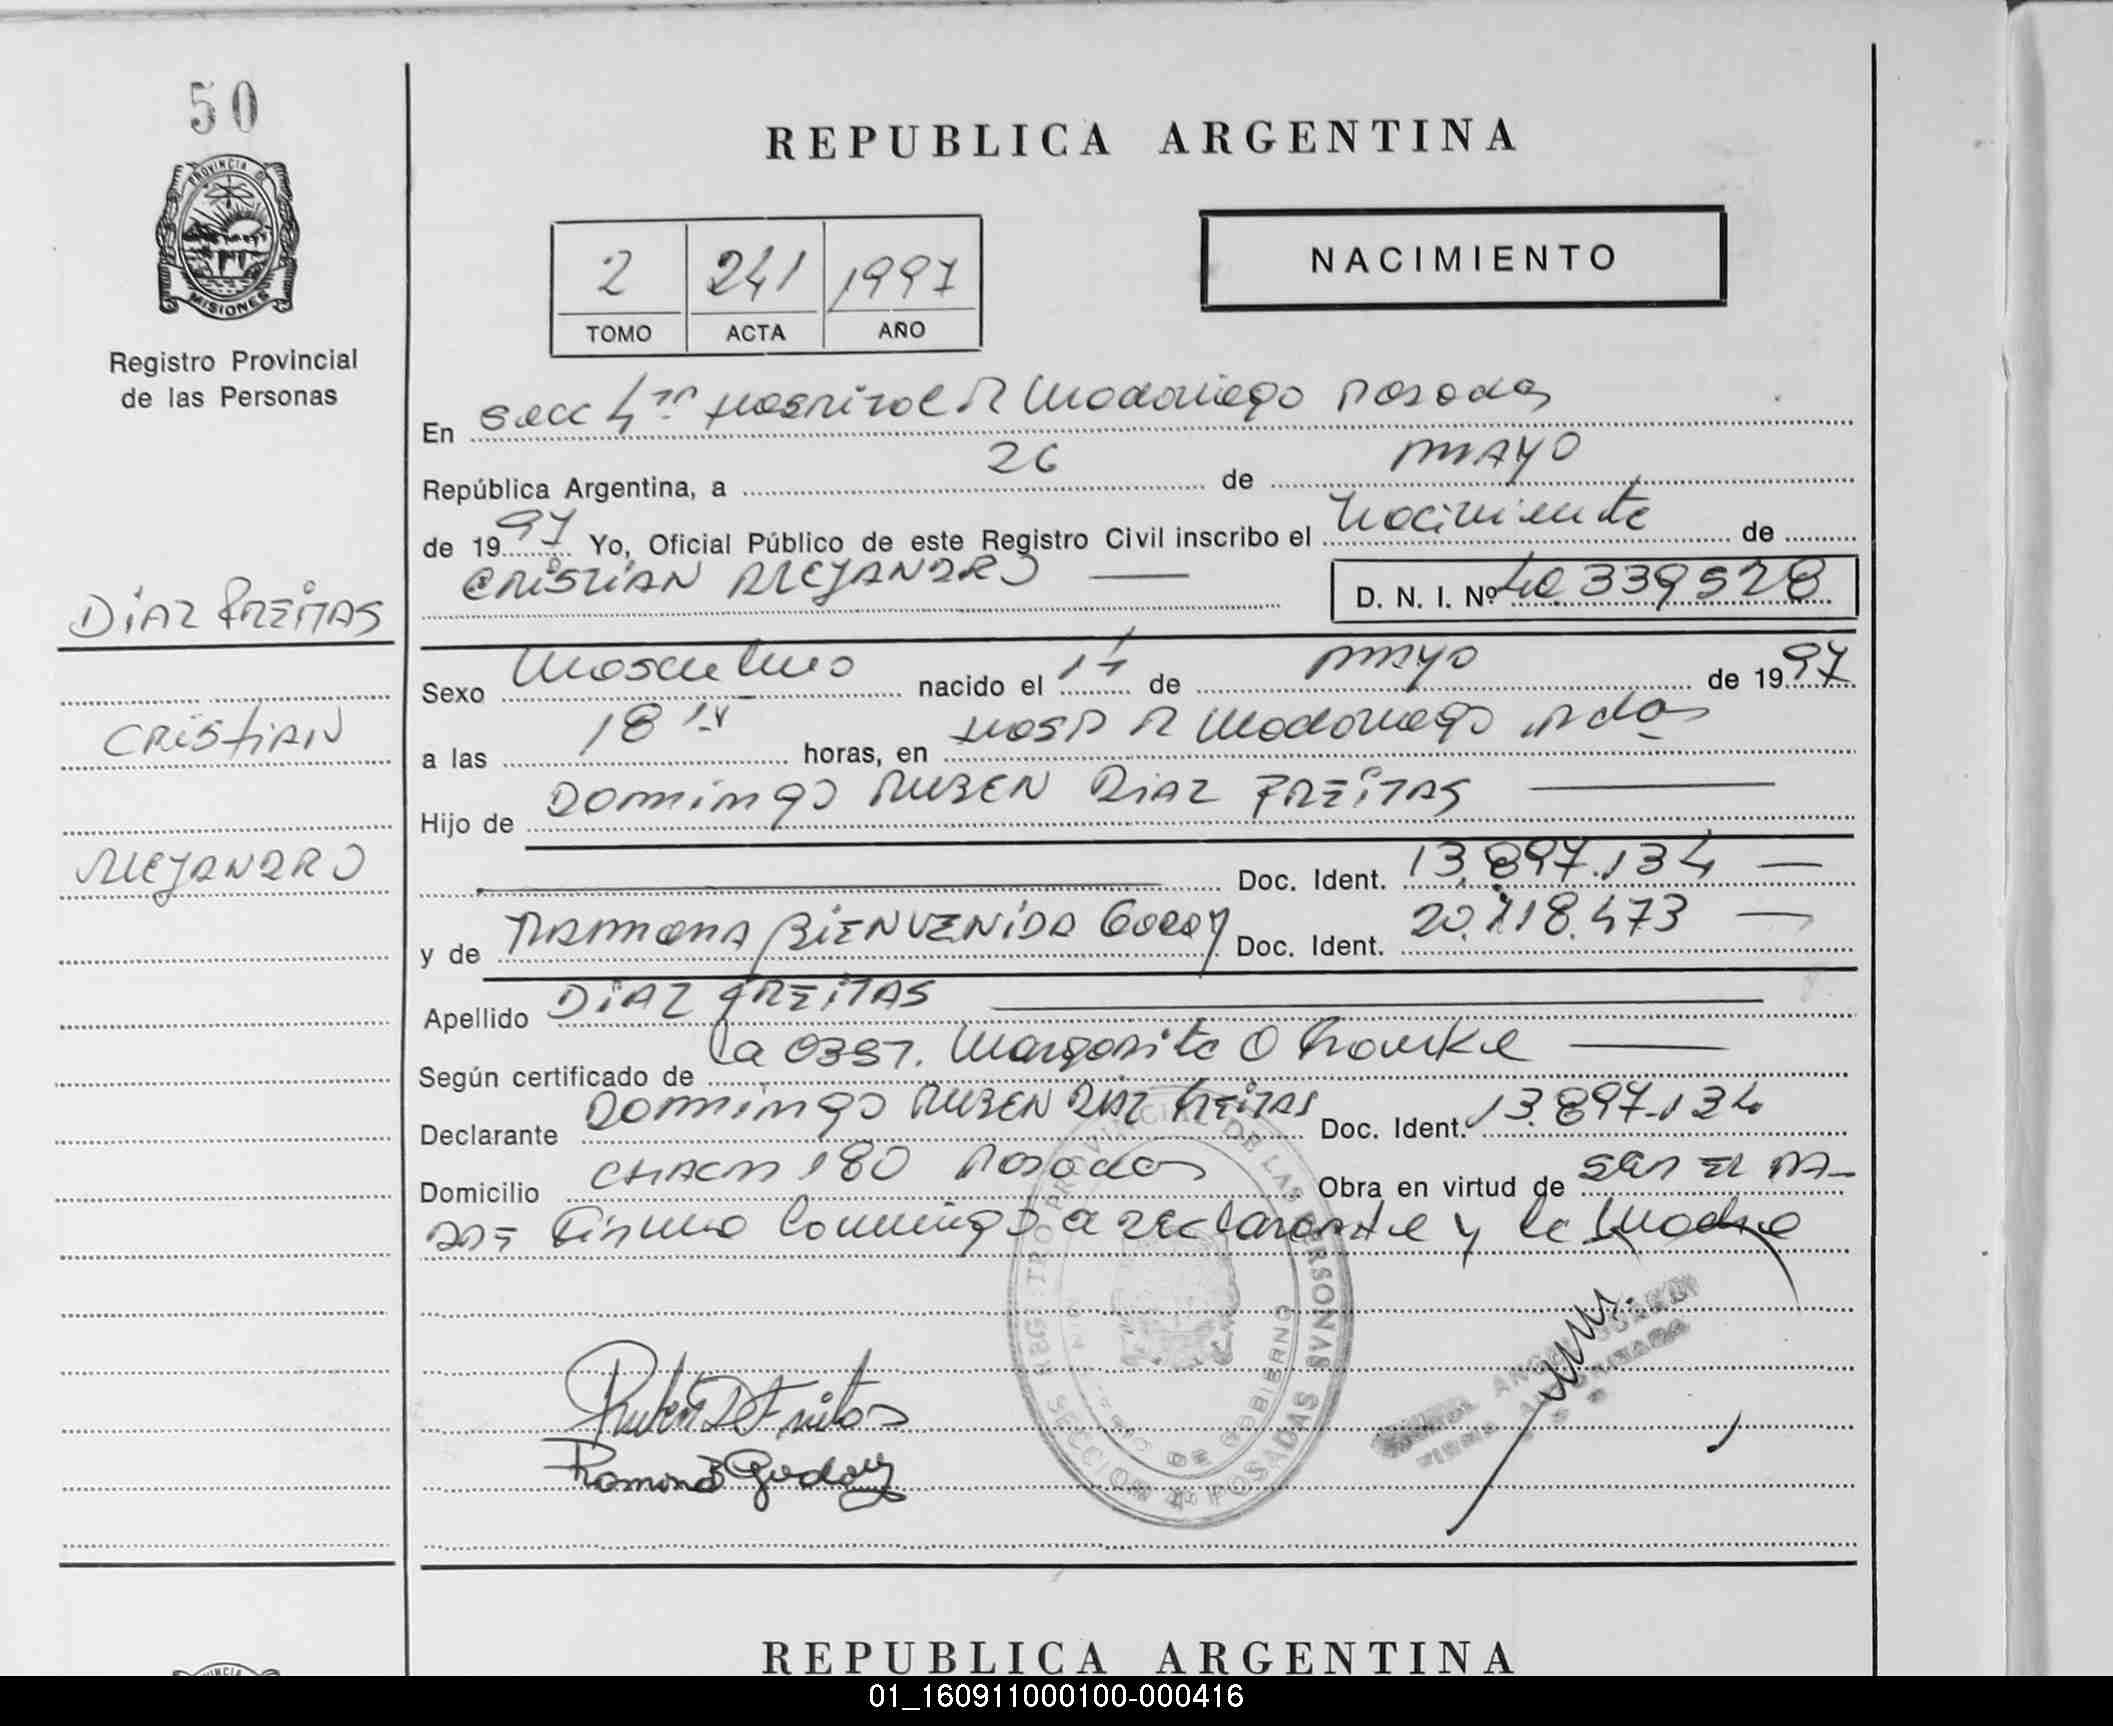 50
PROVINCIA DE
MISIONES
Registro Provincial
de las Personas
REPUBLICA ARGENTINA
2 241 1997
TOMO ACTA AÑO
NACIMIENTO
En Secc 4ta Hospital R Madariaga Posadas
República Argentina, a 26 de MAYO
de 1997 Yo, Oficial Público de este Registro Civil inscribo el Nacimiento de
CRISTIAN ALEJANDRO D. N. I. Nº 40.339528
DIAZ FREITAS
Sexo Masculino nacido el 17 de MAYO de 1997
CRISTIAN
a las 18 horas, en Hosp R Madariaga Pdas
Hijo de DOMINGO RUBEN DIAZ FREITAS
ALEJANDRO
Doc. Ident. 13.897.134
y de RAMONA BIENVENIDA GODOY Doc. Ident. 20.118.473
Apellido DIAZ FREITAS
Según certificado de La OBST. Margarita O
Declarante DOMINGO RUBEN DIAZ FREITAS Doc. Ident. 13.897.134
Domicilio CHACRA 180 Posadas Obra en virtud de SER EL PA-
DRE Firma Conmigo el DEclarante y la Madre
REGISTRO PROVINCIAL DE LAS PERSONAS
SECCION 4ta POSADAS
MINISTERIO DE GOBIERNO
FIRMA AUTORIZADA
Ruben D Freitas
Ramona B Godoy
REPUBLICA ARGENTINA
01_160911000100-000416